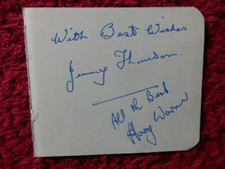 With Best Wishes
Jimmy Thomson.
All the Best
Harry Warner